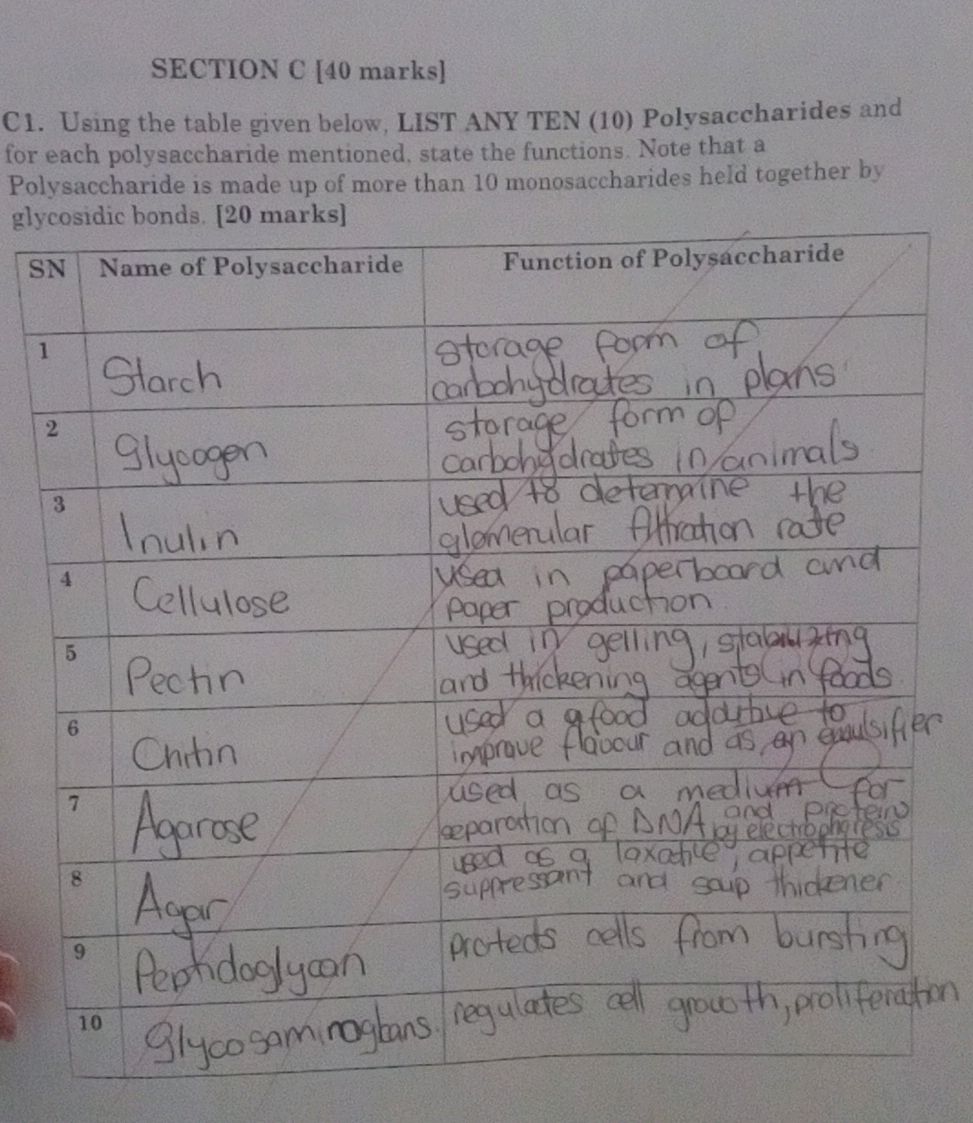 SECTION C [40 marks]
C1. Using the table given below, LIST ANY TEN (10) Polysaccharides and
for each polysaccharide mentioned, state the functions. Note that a
Polysaccharide is made up of more than 10 monosaccharides held together by
glycosidic bonds. [20 marks]
SN Name of Polysaccharide Function of Polysaccharide
1 Starch storage form of
carbohydrates in plans
2 Glycogen storage form of
carbohydrates in animals
3 Inulin used to determine the
glomerular filtration rate
4 Cellulose used in paperboard and
paper production
5 Pectin used in gelling, stabilizing
and thickening agents in foods
6 Chitin used a a food additive to
improve flavour and as an emulsifier
7 Agarose used as a medium for
separation of DNA and proteins
by electrophoresis
8 Agar used as a laxative, appetite
suppressant and soup thickener
9 Peptidoglycan protects cells from bursting
10 Glycosaminoglans. regulates cell growth, proliferation